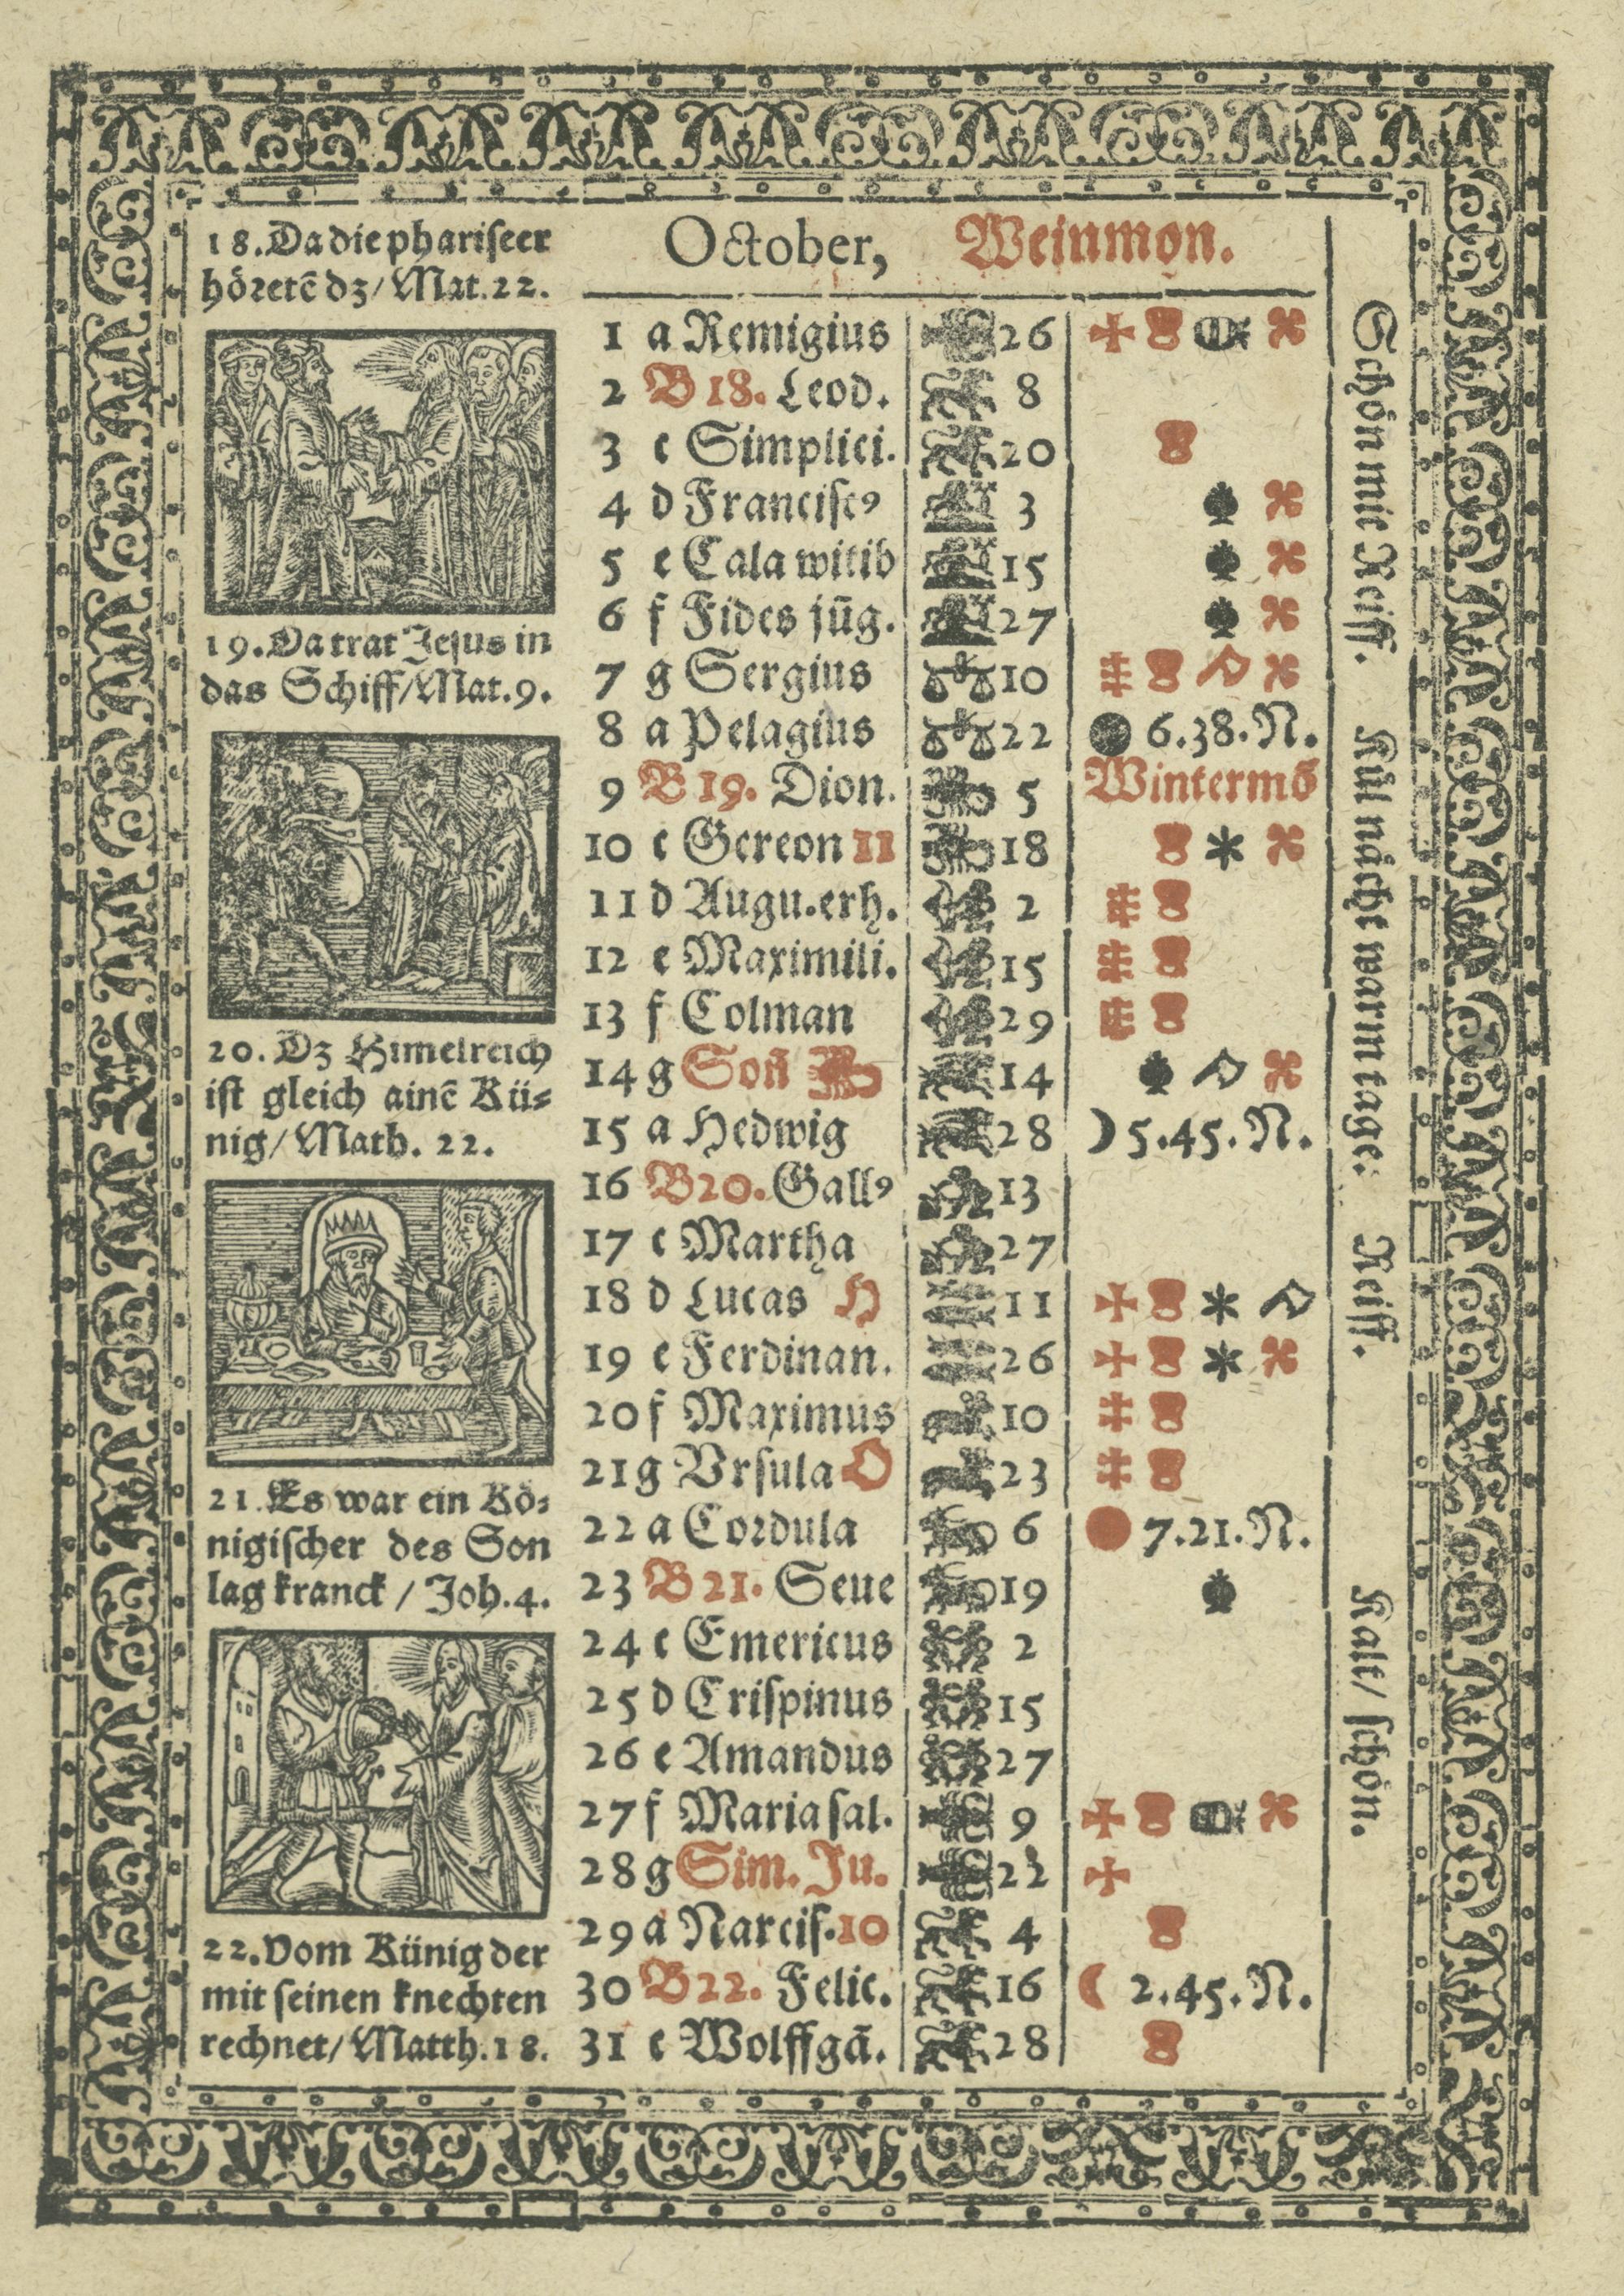 October, Weinmon.
18. Da die phariseer
höretē dz / Mat. 22.
19. Da trat Jesus in
das Schiff / Mat. 9.
20. Dz Himelreich
ist gleich ainē Kü⸗
nig / Math. 22.
21. Es war ein Kö⸗
nigischer des Son
lag kranck / Joh. 4.
22. Vom Künig der
mit seinen knechten
rechnet / Matth. 18.
1 a Remigius 26
2 B 18. Leod. 8
3 c Simplici. 20
4 d Franciscꝰ 3
5 e Cala witib 15
6 f Fides jūg. 27
7 g Sergius 10
8 a Pelagius 22 6.38. N.
9 B 19. Dion. 5 Wintermō
10 c Gereon II 18
11 d Augu. erh. 2
12 e Maximili. 15
13 f Colman 29
14 g Soñ 14
15 a Hedwig 28 5.45. N.
16 B 20. Gallꝰ 13
17 c Martha 27
18 d Lucas H 11
19 e Ferdinan. 26
20 f Maximus 10
21 g Vrsula O 23
22 a Cordula 6 7.21. N.
23 B 21. Seue 19
24 c Emericus 2
25 d Crispinus 15
26 e Amandus 27
27 f Maria sal. 9
28 g Sim. Ju. 22
29 a Narcis. 10 4
30 B 22. Felic. 16 2.45. N.
31 c Wolffgā. 28
Schön mit Reiff. Kül nächt warm tage: Reiff. Kalt / schön.